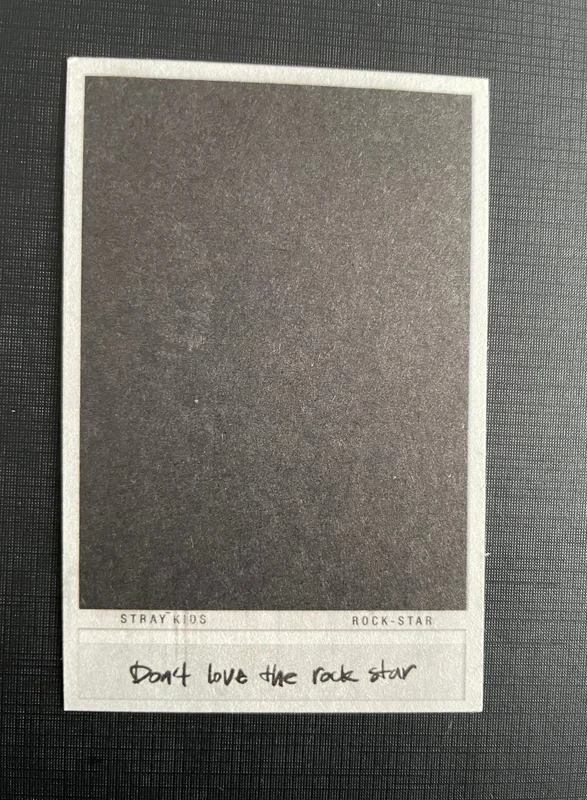 STRAY KIDS ROCK-STAR
Don't love the rock star